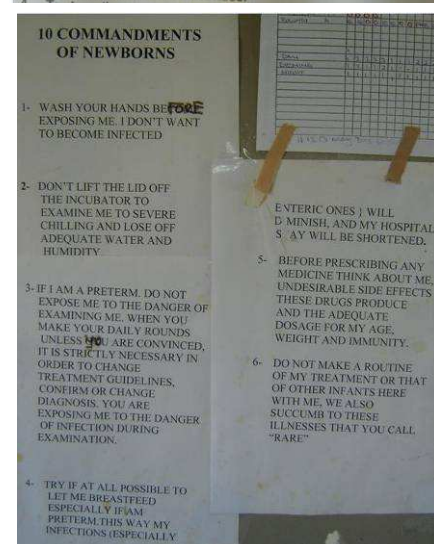 10 COMMANDMENTS
OF NEWBORNS
1- WASH YOUR HANDS BEFORE
EXPOSING ME. I DON'T WANT
TO BECOME INFECTED
2- DON'T LIFT THE LID OFF
THE INCUBATOR TO
EXAMINE ME TO SEVERE
CHILLING AND LOSE OFF
ADEQUATE WATER AND
HUMIDITY
3- IF I AM A PRETERM. DO NOT
EXPOSE ME TO THE DANGER OF
EXAMINING ME. WHEN YOU
MAKE YOUR DAILY ROUNDS
UNLESS YOU ARE CONVINCED,
IT IS STRICTLY NECESSARY IN
ORDER TO CHANGE
TREATMENT GUIDELINES,
CONFIRM OR CHANGE
DIAGNOSIS. YOU ARE
EXPOSING ME TO THE DANGER
OF INFECTION DURING
EXAMINATION.
4- TRY IF AT ALL POSSIBLE TO
LET ME BREASTFEED
ESPECIALLY IF AM
PRETERM.THIS WAY MY
INFECTIONS (ESPECIALLY
ENTERIC ONES } WILL
DIMINISH, AND MY HOSPITAL
STAY WILL BE SHORTENED.
5- BEFORE PRESCRIBING ANY
MEDICINE THINK ABOUT ME,
UNDESIRABLE SIDE EFFECTS
THESE DRUGS PRODUCE
AND THE ADEQUATE
DOSAGE FOR MY AGE,
WEIGHT AND IMMUNITY.
6- DO NOT MAKE A ROUTINE
OF MY TREATMENT OR THAT
OF OTHER INFANTS HERE
WITH ME, WE ALSO
SUCCUMB TO THESE
ILLNESSES THAT YOU CALL
"RARE"